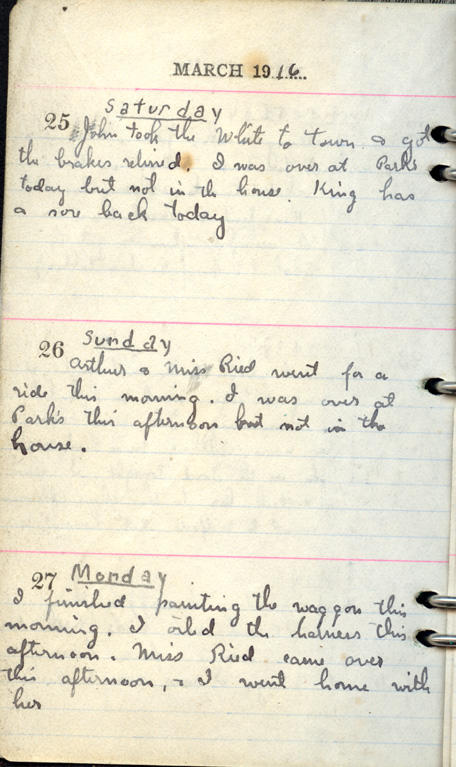 MARCH 1916
Saturday
25 John took the White to town & got
the brakes relined. I was over at Parks
today but not in the house. King has
a sore back today
Sunday
26 Arthur & Miss Ried went for a
ride this morning. I was over at
Park's this afternoon but not in the
house.
Monday
27
I finished painting the waggon this
morning. I oiled the harness this
afternoon. Miss Ried came over
this afternoon, & I went home with
her